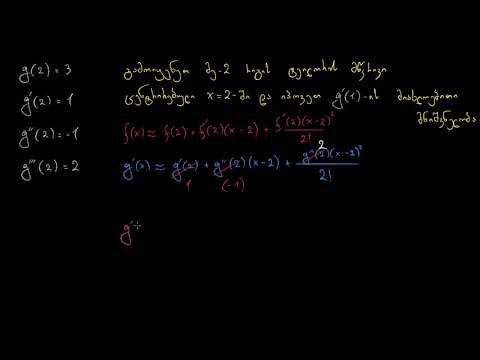 g(2) = 3 გამოიყენეთ მე-2 რიგის ტეილორის მწკრივი
g'(2) = 1 ცენტრირებული x=2-ში და იპოვეთ g'(1)-ის მიახლოებითი
მნიშვნელობა
g''(2) = -1 f(x) ≈ f(2) + f'(2)(x-2) + f''(2)(x-2)² / 2!
g'''(2) = 2 g'(x) ≈ g'(2) + g''(2)(x-2) + g'''(2)(x-2)² / 2!
2
1 (-1)
g'